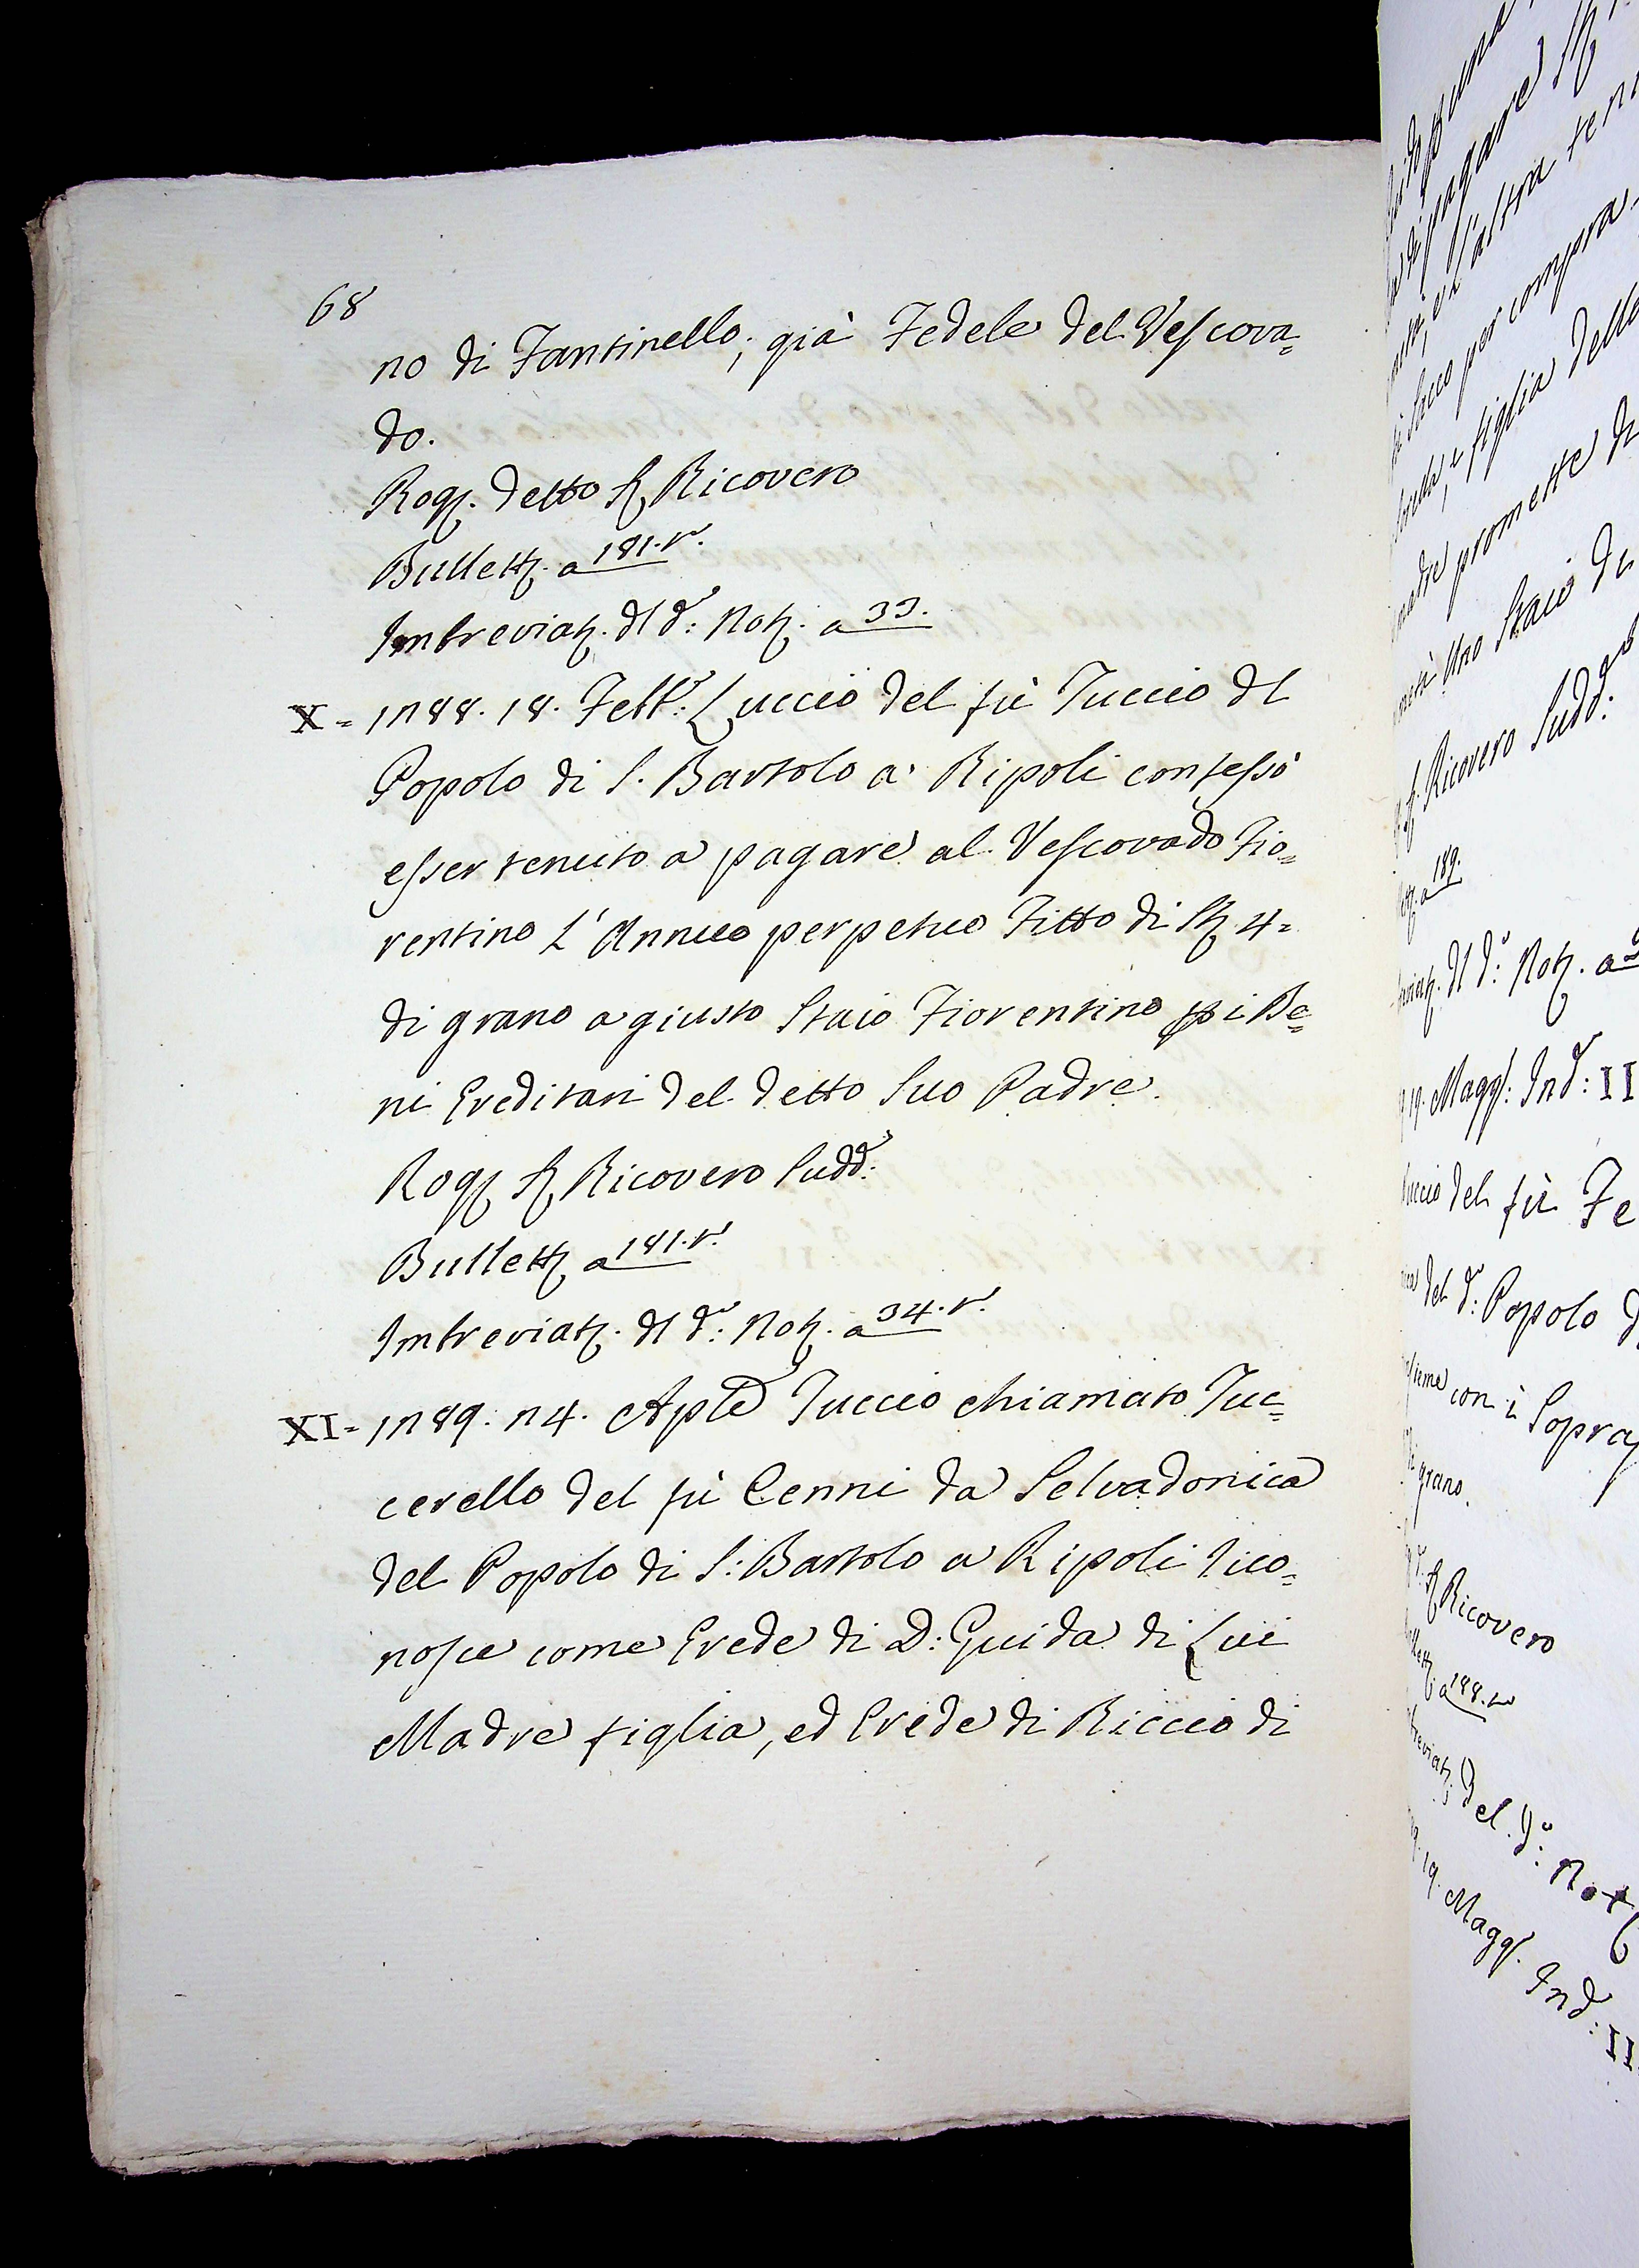 68
no di Fantinello, già Fedele del Vescova=
do.
Rog. detto S. Ricovero
Bullett. a 181. r.
Imbreviat. dl d.º: Not. a 33.
X = 1288. 18. Febb.º: Luccio del fù Tuccio dl
Popolo di S. Bartolo a' Ripoli confessò
esser tenuto a pagare al Vescovado Fio=
rentino L'Annuo perpetuo Fitto di St. 4=
di grano a giusto Staio Fiorentino p i Be=
ni Ereditari del detto Suo Padre.
Rog. S. Ricovero Sudd.º:
Bullett. a 181. r.
Imbreviat. dl d.º: Not. a 34. r.
XI = 1289. 24. Aple Tuccio chiamato Tuc=
cerello del fù Cenni da Selvadonica
del Popolo di S: Bartolo a Ripoli rico=
nosce come Erede di D: Guida di Lui
Madre figlia, ed Erede di Riccio di
pagare
L'altra
per compra
figlia della
promette di
Uno Staio di
S. Ricovero Sudd.º:
189.
dl d.º: Not. a
19. Magg.: Ind.: II
del fù Fe
del d.º: Popolo d
con i Sopra
grano.
S. Ricovero
a 188.
Del. d.º: Not
19. Magg. Ind.: II